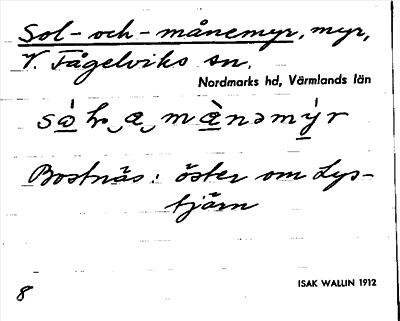 Sol-och-månemyr, myr,
V. Fågelviks sn.
Nordmarks hd, Värmlands län
Bostnäs: öster om Lys-
tjärn
ISAK WALLIN 1912
8